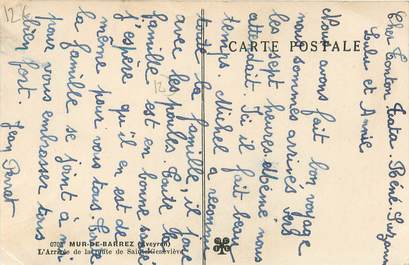 Cher Tonton, Tata, Bébé, Suzanne
Lulu et Annie
Nous avons fait bon voyage
nous sommes arrivés vers
les sept heures. Mémé nous
attendait. Ici il fait beau
temps. Michel a reconnu
toute la famille, il joue
avec les poules. Toute la
famille est en bonne santé
j'espère qu'il en est de
même pour vous tous. Toute
la famille se joint à moi
pour vous embrasser tous
bien fort.
Jean
CARTE POSTALE
MUR-DE-BARREZ (Aveyron)
L'Arrivée de la Route de Sainte-Geneviève